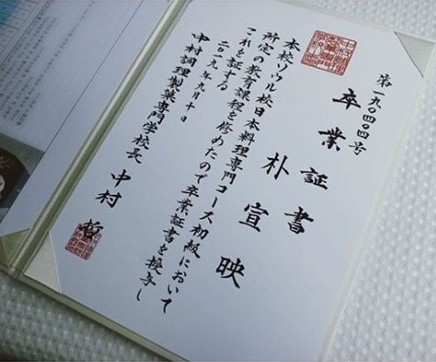 第一九〇四〇四号
卒業証書
朴宣映
本校ソウル校日本料理専門コース初級において
所定の教育課程を修めたので卒業証書を授与し
これを証する
二〇一九年九月十日
中村調理製菓専門学校長 中村 哲